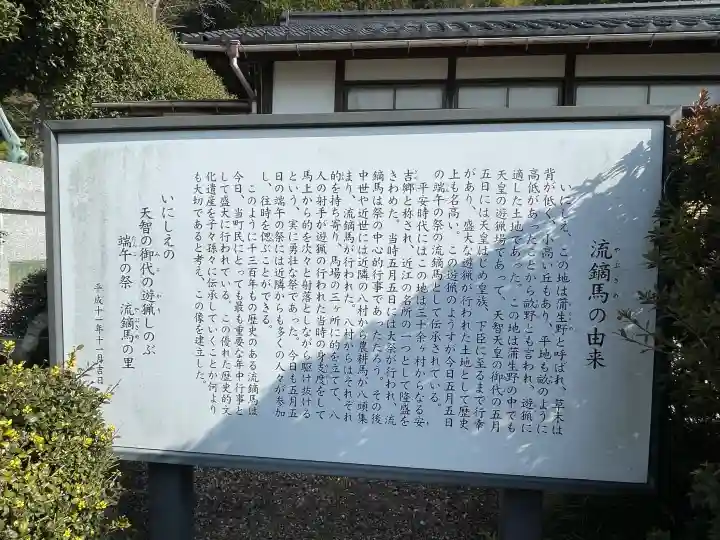 流鏑馬の由来
やぶさめ
いにしえ、この地は蒲生野と呼ばれ、草木は
背が低く、小高い丘もあり、平地も畝のように
高低があったことから畝野とも言われ、遊猟に
適した土地であった。この地は蒲生野の中でも
天皇の遊猟場であって、天智天皇の御代の五月
五日には天皇はじめ皇族、下臣に至るまで行幸
があり、盛大な遊猟が行われた土地として歴史
上も名高い。この遊猟のようすが今日五月五日
の端午の祭の流鏑馬として伝承されている。
平安時代にはこの地は三十余ヶ村からなる安
吉郷と称され、近江の名所の一つとして隆盛を
きわめた。当時五月五日には大祭が行われ、流
鏑馬は祭の中心的行事であったろう。その後
中世や近世には近隣の八村から農耕馬が八頭集
まり、流鏑馬が行われた。八村からはそれぞれ
的を持ち寄り、馬場の三ヶ所に的を立てて、八
人の射手が遊猟の行われた当時の身支度をして
馬上から的を次々と射落としながら駆け抜ける
という、実に勇壮な祭であった。今日も五月五
日の端午の祭には近隣からも多くの人々が参加
し、往時を偲ぶことができる。
このように千三百年もの歴史のある流鏑馬は
今日、当町人民にとっても最も重要な年中行事と
して盛大に行われている。この優れた歴史的文
化遺産を子々孫々に伝承していくことが何より
も大切であると考え、この像を建立した。
いにしえの
天智の御代の遊猟しのぶ
端午の祭　流鏑馬の里
平成十一年十一月吉日